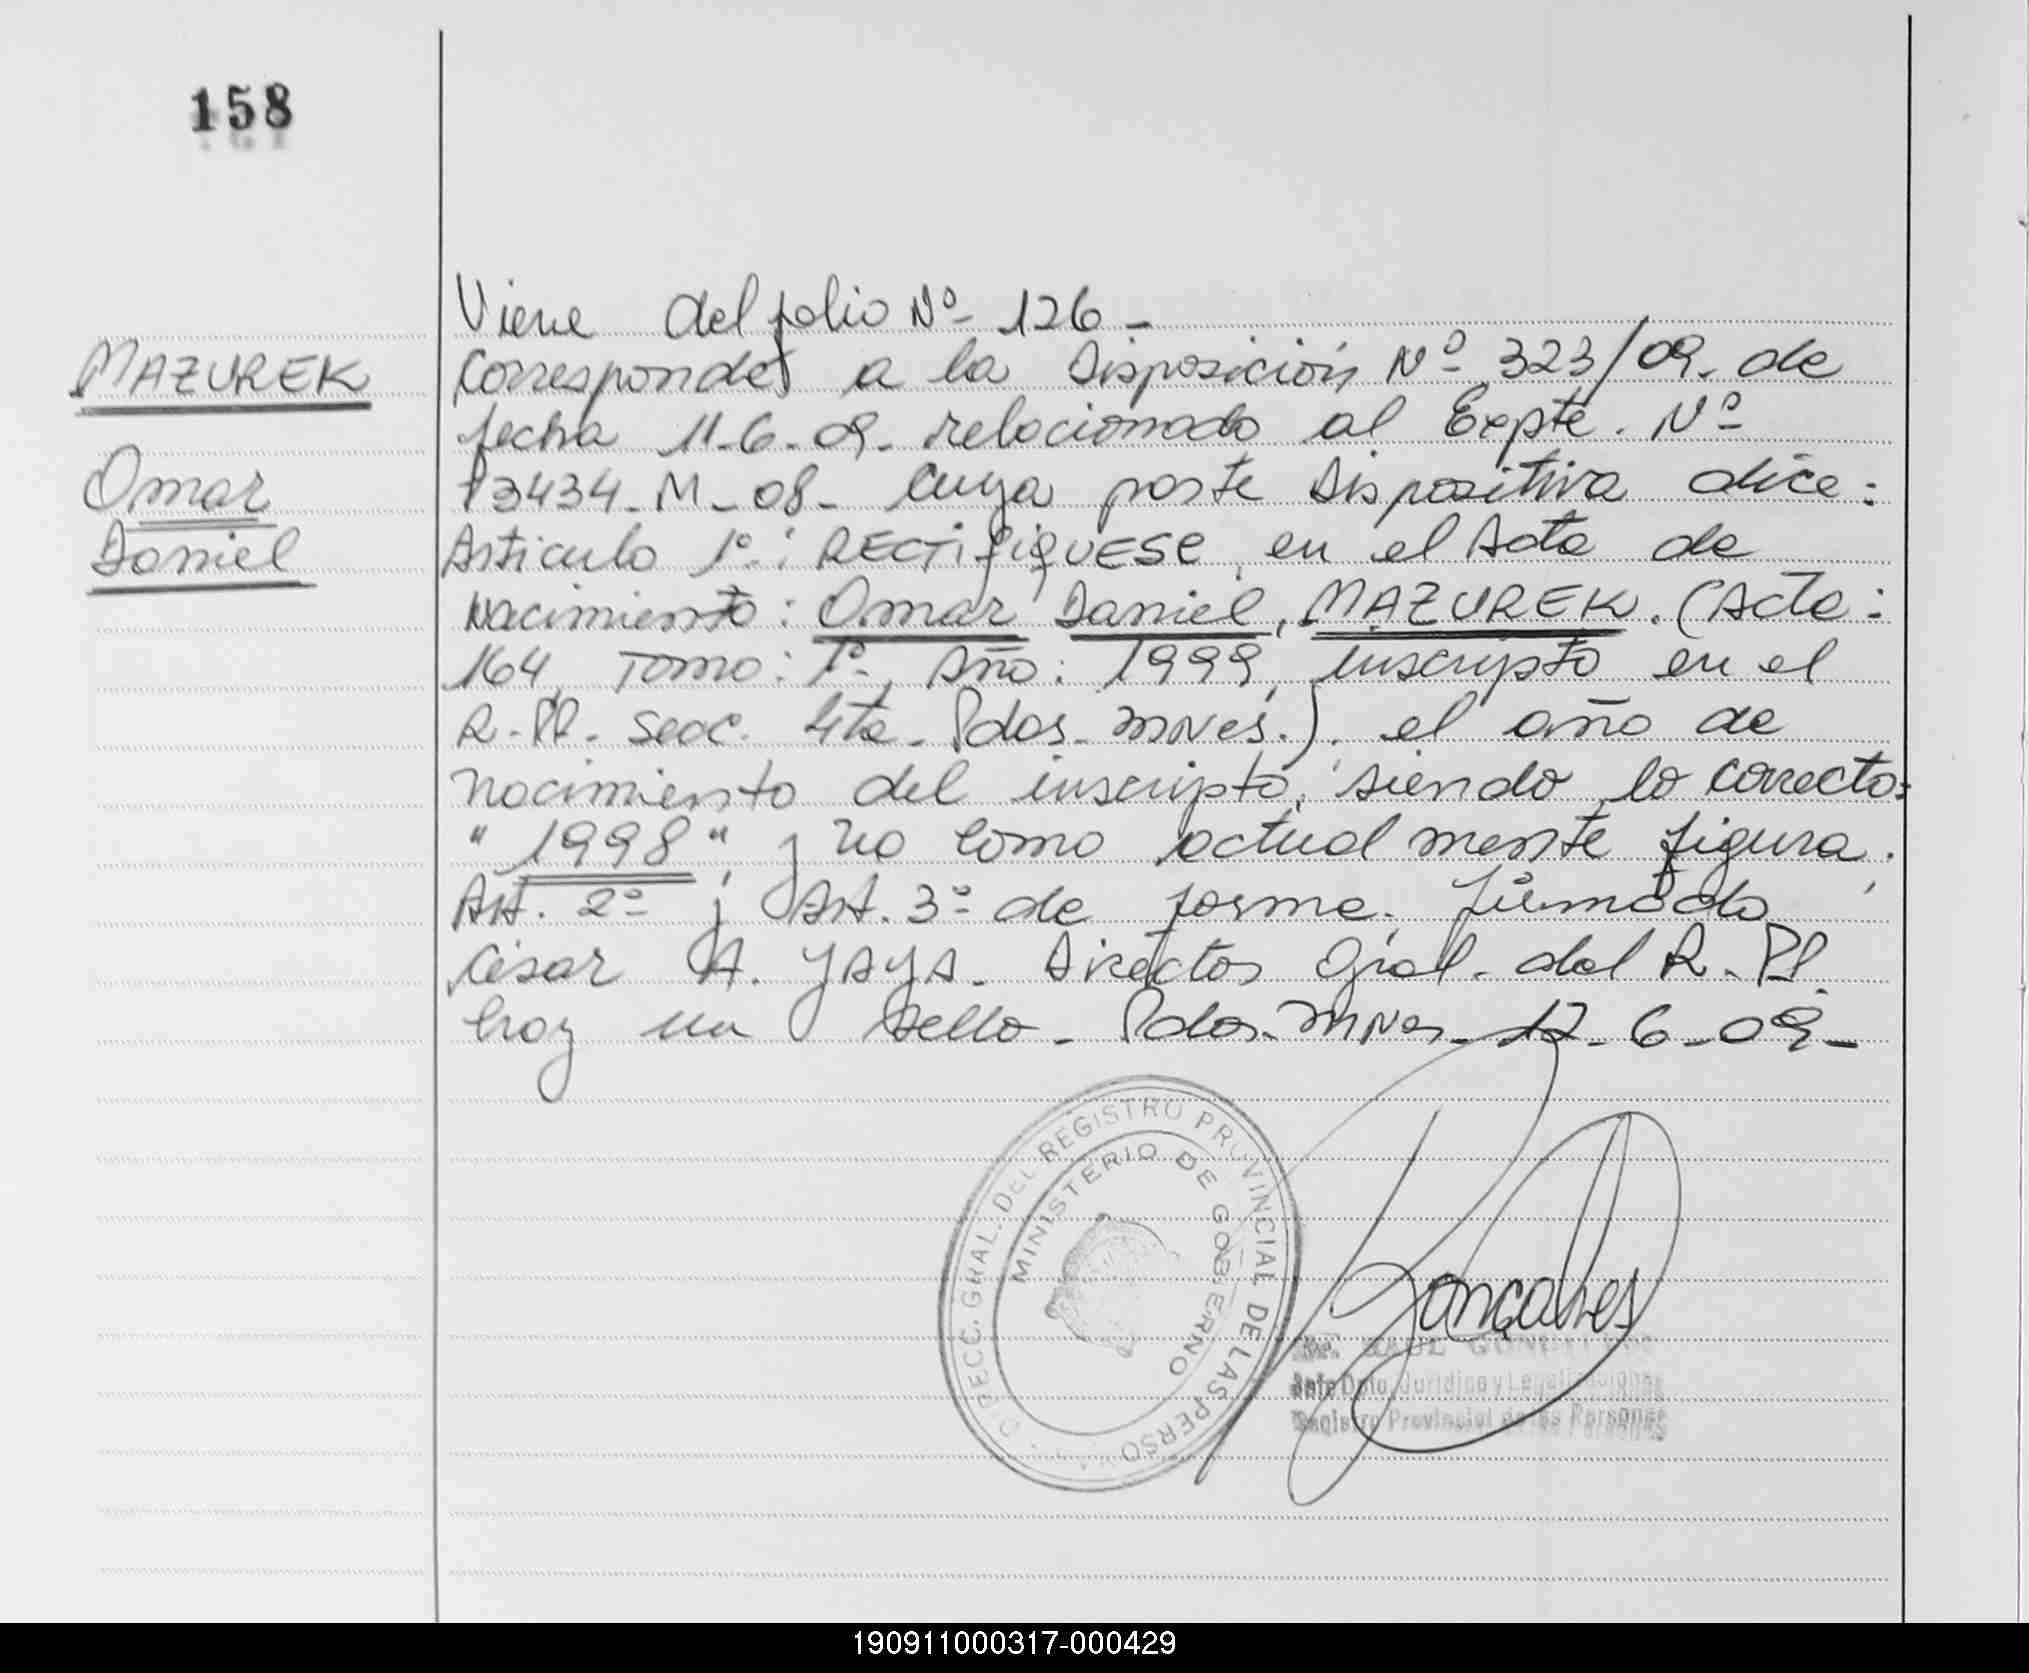 158
MAZUREK
Omar
Daniel
Viene del folio Nº 126 -
Corresponde a la Disposición Nº 323/09. de
fecha 11-6-09- relacionado al Expte. Nº
13434-M-08- Cuya parte Dispositiva dice:
Articulo 1º: RECTIFIQUESE, en el Acta de
Nacimiento: Omar Daniel, MAZUREK. (Acta:
164, Tomo: 1º, Año: 1999, inscripto en el
R.PP. Secc. 4ta. Pdas. Mnes.). el año de
nacimiento del inscripto, siendo lo correcto:
" 1998 " y no como actualmente figura.
Art. 2º y Art. 3º de forma. firmado
César A. YAYA. Director Gral. del R.PP.
hay un Sello - Pdas. Mnes. 12-6-09-
DIRECC. GRAL. DEL REGISTRO PROVINCIAL DE LAS PERSO
MINISTERIO DE GOBIERNO
Gonçalves
RAUL
Jefe Dpto. Jurídico y Legalizaciones
Registro Provincial de las Personas
190911000317-000429